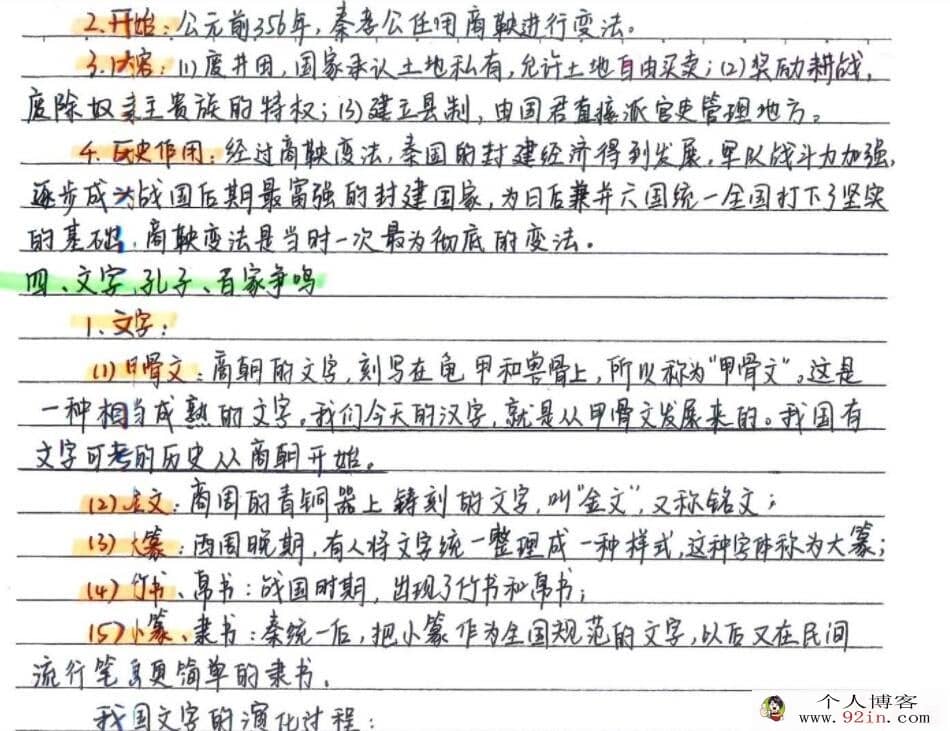 2.开始：公元前356年，秦孝公任用商鞅进行变法。
3.内容：(1)废井田，国家承认土地私有，允许土地自由买卖；(2)奖励耕战，
废除奴隶主贵族的特权；(3)建立县制，由国君直接派官吏管理地方。
4.历史作用：经过商鞅变法，秦国的封建经济得到发展，军队战斗力加强，
逐步成为战国后期最富强的封建国家，为日后兼并六国统一全国打下了坚实
的基础，商鞅变法是当时一次最为彻底的变法。
四、文字、孔子、百家争鸣
1、文字：
(1)甲骨文：商朝的文字，刻写在龟甲和兽骨上，所以称为"甲骨文"。这是
一种相当成熟的文字，我们今天的汉字，就是从甲骨文发展来的。我国有
文字可考的历史从商朝开始。
(2)金文：商周的青铜器上铸刻的文字，叫"金文"，又称铭文；
(3)大篆：西周晚期，有人将文字统一整理成一种样式，这种字体称为大篆；
(4)竹书、帛书：战国时期，出现了竹书和帛书；
(5)小篆、隶书：秦统一后，把小篆作为全国规范的文字，以后又在民间
流行笔更简单的隶书.
我国文字的演化过程：
个人博客
www.92in.com